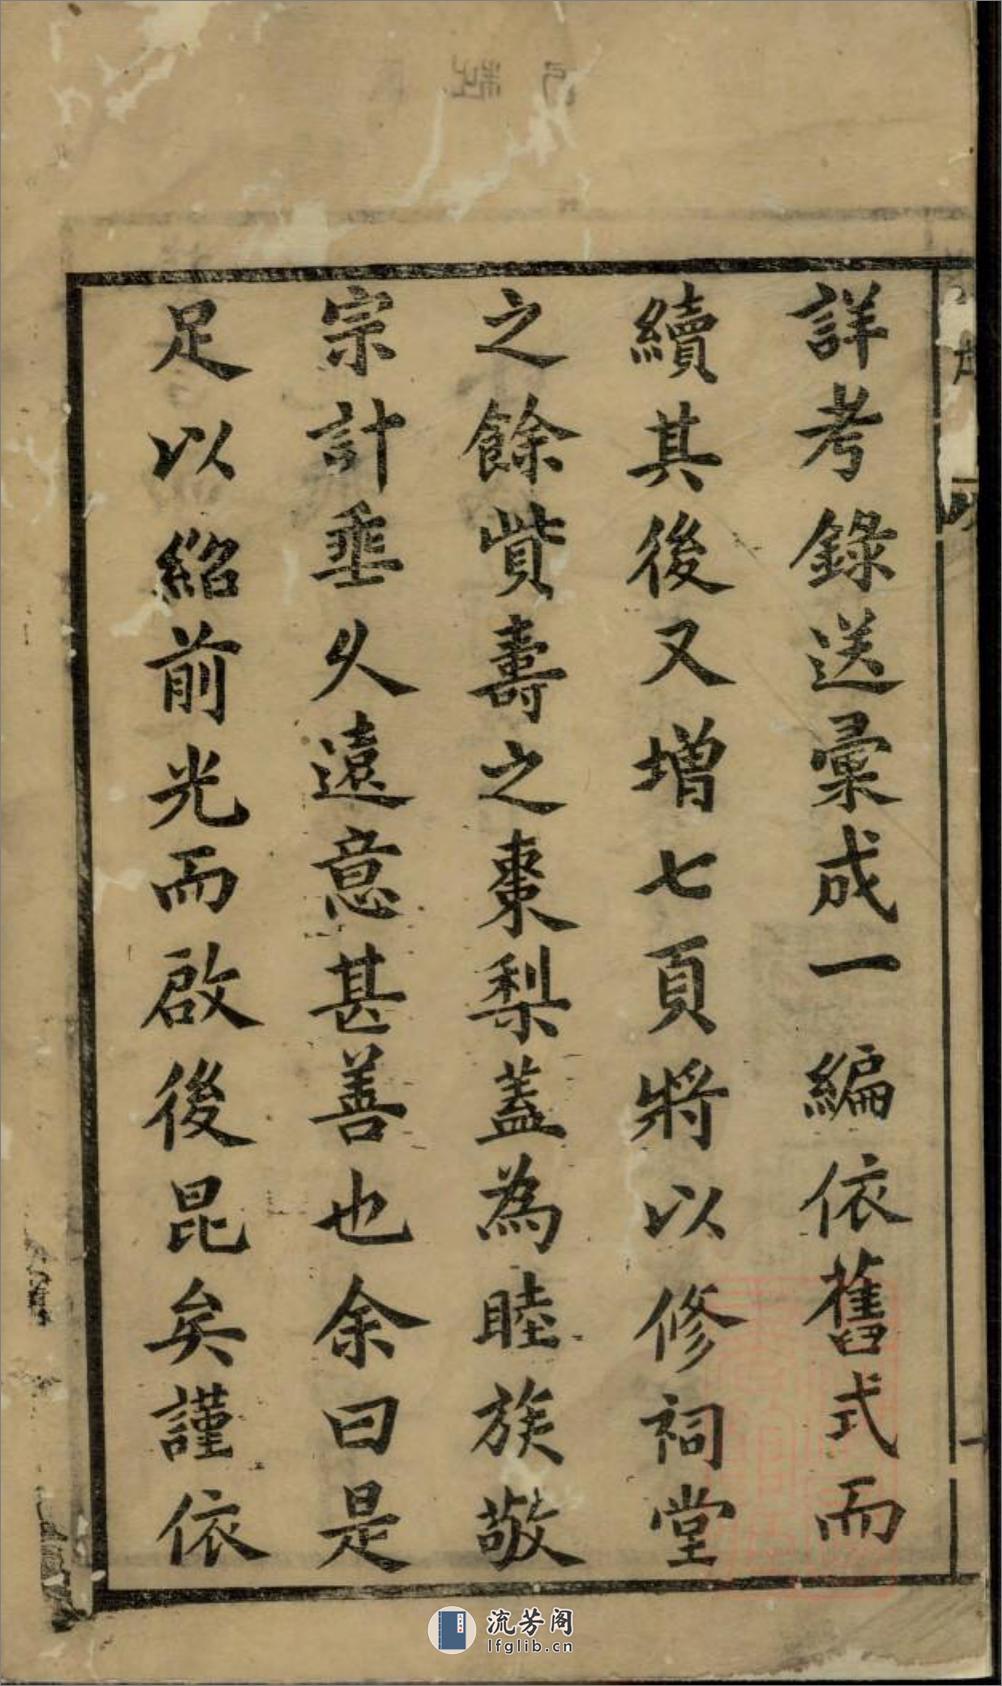 詳考錄送彙成一編依舊式而
續其後又增七頁將以修祠堂
之餘貲壽之棗梨蓋為睦族敬
宗計垂久遠意甚善也余曰是
足以紹前光而啟後昆矣謹依
流芳阁
lfglib.cn